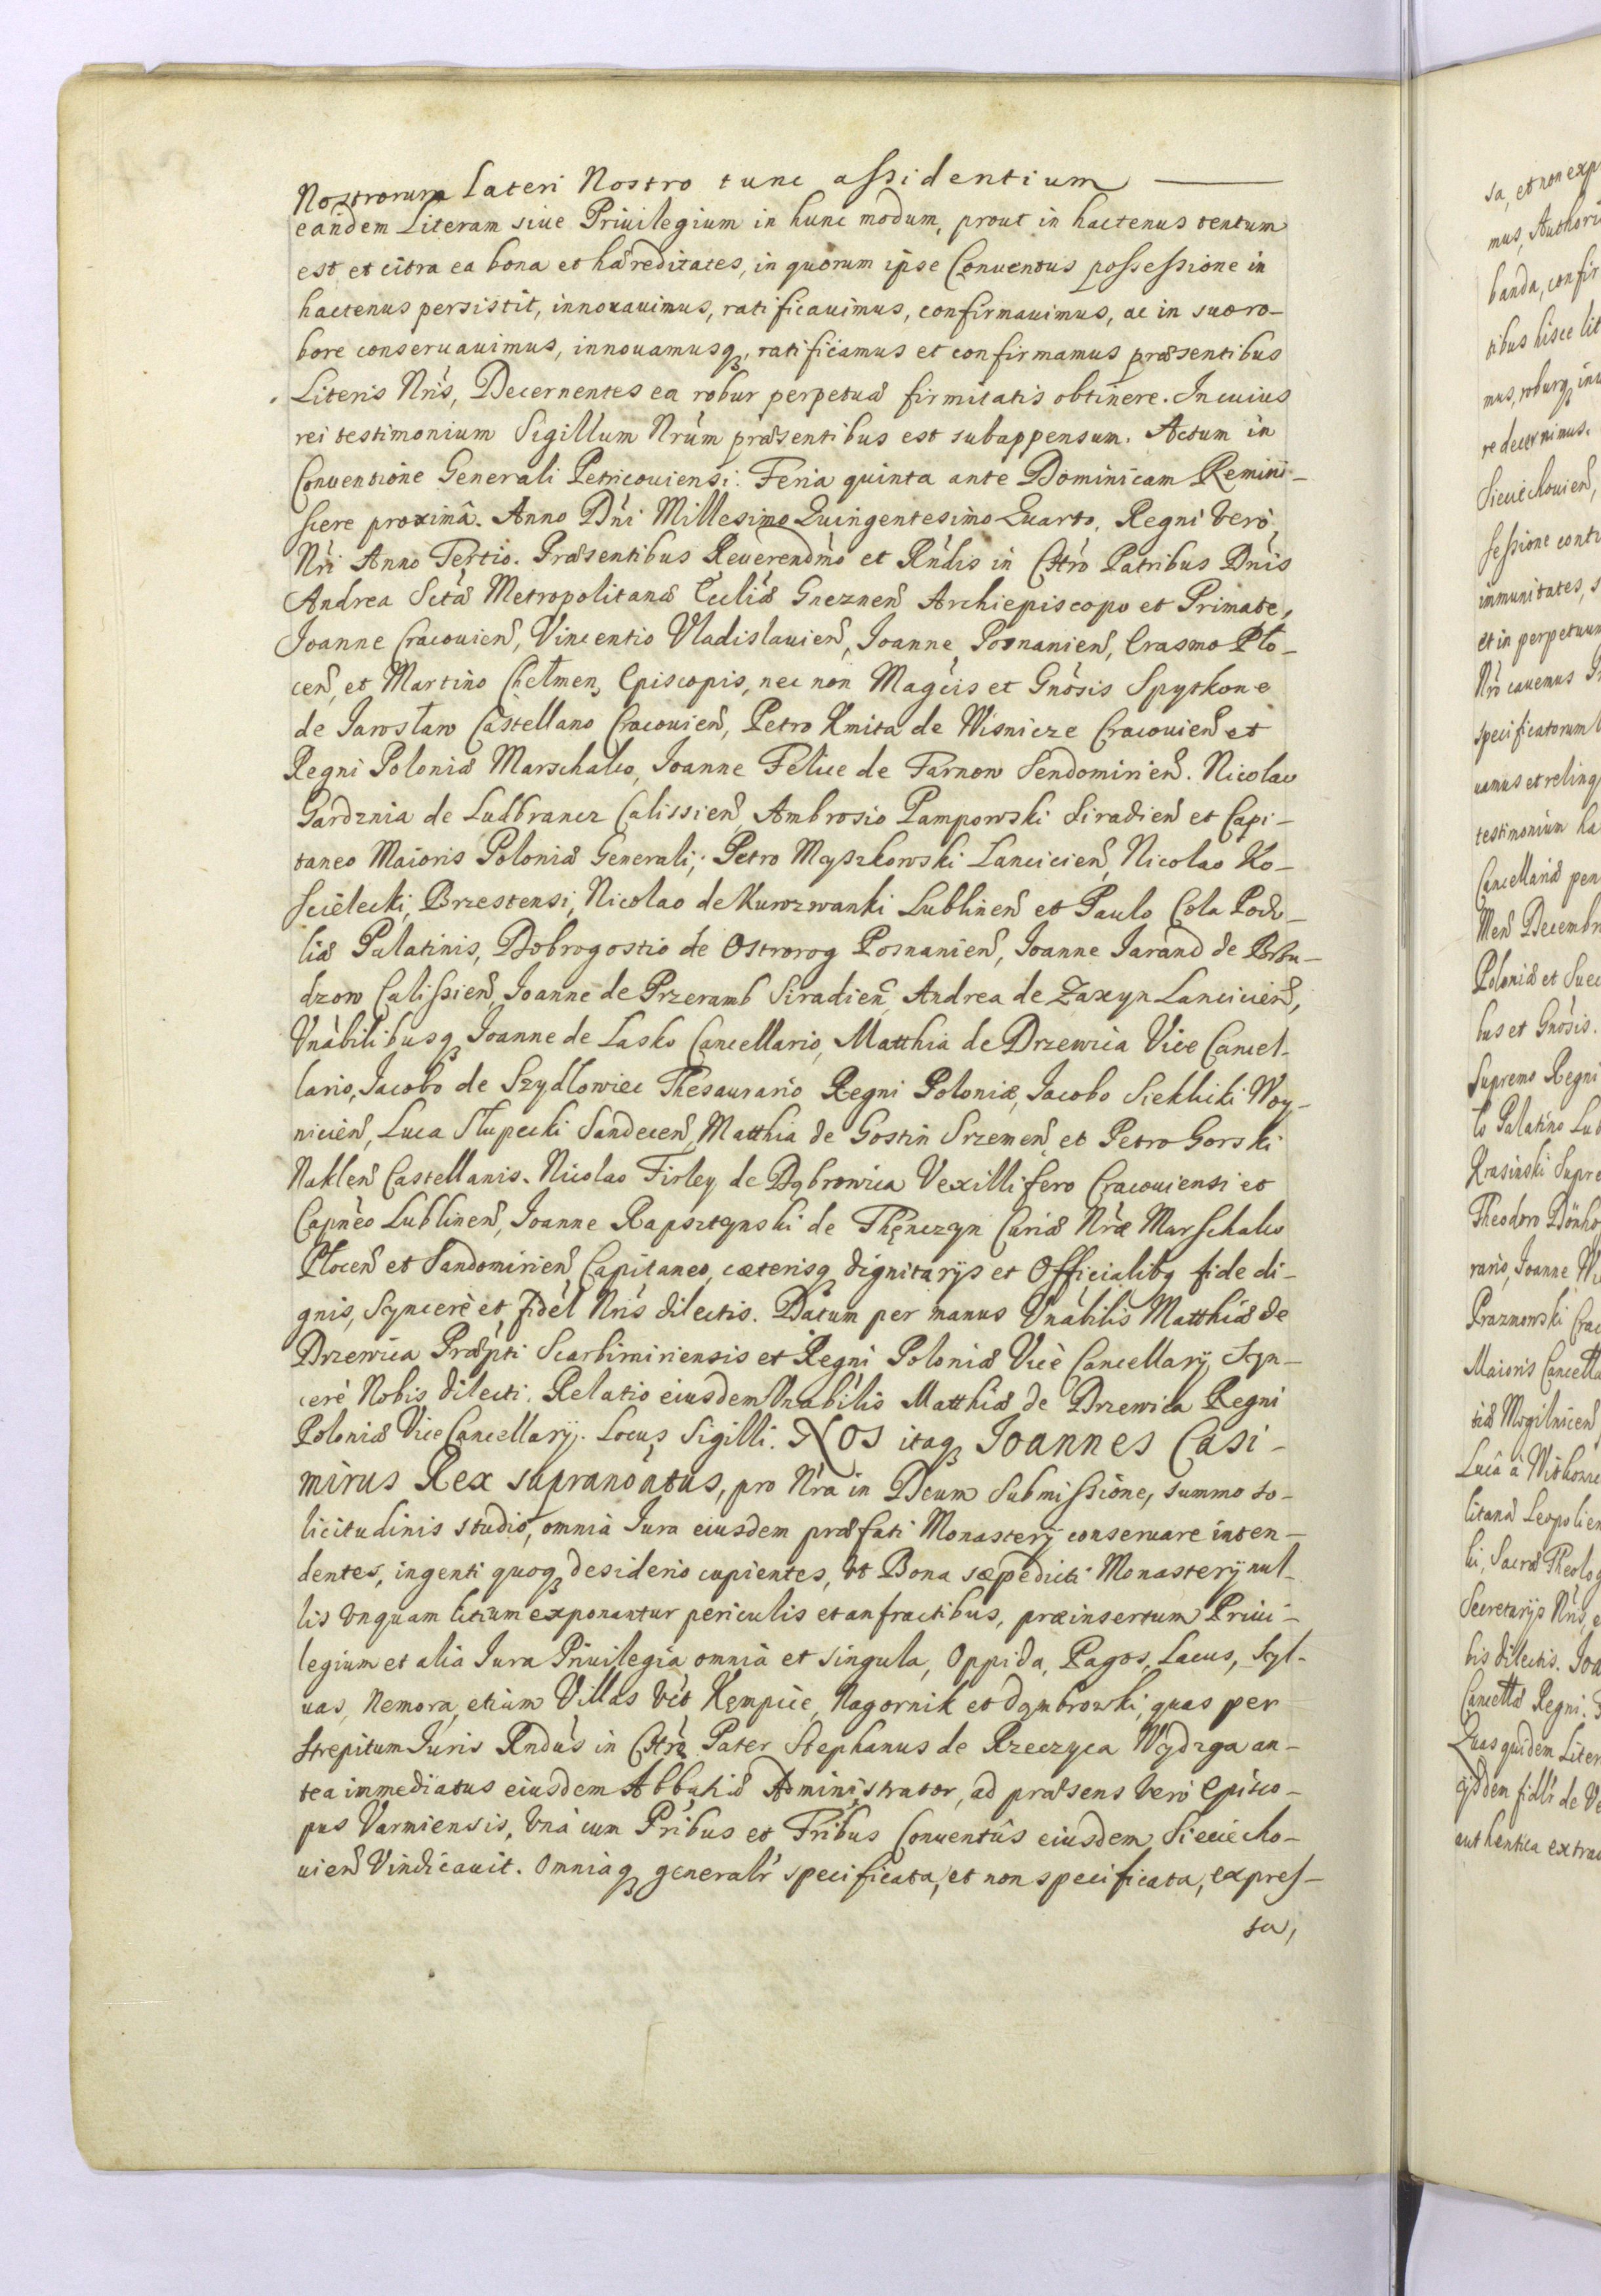 Nostrorum Lateri Nostro tunc assidentium
eandem Literam siue Priuilegium in hunc modum, prout in hactenus tentum
est et citra ea bona et hæreditates, in quorum ipse Conuentus possessione in
hactenus persistit, innouauimus, ratificauimus, confirmauimus, ac in suo ro-
bore conseruauimus, innouamusq, ratificamus et confirmamus præsentibus
Literis Nris, Decernentes ea robur perpetuæ firmitatis obtinere. In cuius
rei testimonium Sigillum Nrum præsentibus est subappensum. Actum in
Conuentione Generali Petricouiensi. Feria quinta ante Dominicam Remini-
scere proximâ. Anno Dni Millesimo Quingentesimo Quarto, Regni verò
Nri Anno Tertio. Præsentibus Reuerendmo et Rndis in Chro Patribus Dnis
Andrea Sctæ Metropolitanæ Eccliæ Gneznen Archiepiscopo et Primate,
Joanne Cracouien, Vincentio Vladislauien, Joanne Posnanien, Erasmo Plo-
cen, et Martino Chełmen, Episcopis, nec non Magcis et Gnosis Spytkone
de Jarosław Castellano Cracouien, Petro Kmita de Wisnicze Cracouien et
Regni Poloniæ Marschalco, Joanne Felice de Tarnow Sendomirien. Nicolao
Gardznia de Ludbrancz Calissien, Ambrosio Pampowski Siradien et Capi-
taneo Maioris Poloniæ Generali, Petro Myszkowski Lancicien, Nicolao Ko-
scielecki, Brzestensi, Nicolao de Kurozwanki Lublinen et Paulo Cola Podo-
liæ Palatinis, Dobrogostio de Ostrorog Posnanien, Joanne Jarand de Brdu-
dzow Calissien, Joanne de Przeramb Siradien, Andrea de Zaxyn Lancicien,
Vnabilibusq Joanne de Lasko Cancellario, Matthia de Drzewica Vice Cancel-
lario, Jacobo de Szydlowiec Thesaurario Regni Poloniæ, Jacobo Sieklicki Woy-
nicien, Luca Słupecki Sandecen, Matthia de Gostin Srzemen, et Petro Gorski
Naklen Castellanis. Nicolao Firley de Dąbrowica Vexillifero Cracouiensi et
Capneo Lublinen, Joanne Rapsztynski de Thęnczyn Curiæ Nræ Marschalco
Plocen et Sandomirien Capitaneo, cæterisq dignitarijs et Officialibq fide di-
gnis, Syncerè et fidel Nris dilectis. Datum per manus Vnabilis Matthiæ de
Drzewica Præpti Scarbimiriensis et Regni Poloniæ Vicè Cancellarij Syn-
cerè Nobis dilecti. Relatio eiusdem Vnabilis Matthiæ de Drzewica Regni
Poloniæ Vice Cancellarij. Locus Sigilli. NOS itaq Joannes Casi-
mirus Rex supranoatus, pro Nra in Deum Submissione, summo so-
licitudinis studio, omnia Jura eiusdem præfati Monasterij conseruare inten-
dentes, ingenti quoq desiderio cupientes, vt Bona sæpedicti Monasterij nul-
lis vnquam litium exponantur periculis et anfractibus, præinsertum Priui-
legium et alia Jura Priuilegia omnia et singula, Oppida, Pagos, Lacus, Syl-
uas, Nemora, etium Villas vct Kempice, Nagornik et Dąmbrowki, quas per
strepitum Juris Rndus in Chro Pater Stephanus de Rzeczyca Wydzga an-
tea immediatus eiusdem Abbatiæ Administrator, ad præsens verò Episco-
pus Varmiensis, vnà cum Pribus et Fribus Conuentûs eiusdem Sieciecho-
uien Vindicauit. Omniaq generalr specificata, et non specificata, expres-
sa,
sa, et non exp
mus, Authori
banda, confir
tibus hisce lit
mus, roburq
re decernimus.
Sieciechouien,
sessione cont
immunitates, s
et in perpetuum
Nro cauemus
specificatorum
uamus et relinq
testimonium ha
Cancellariæ pen
Men Decembr
Poloniæ et Suec
bus et Gnosis.
Supremo Regni
lo Palatino Lub
Krasinski Supre
Theodoro Dönho
rario, Joanne
Prazmowski Crac
Maioris Cancella
tiæ Mogilnicen
Lucâ à Witkow
litanæ Leopolien
ki, Sacræ Theolog
Secretarijs Nris, e
bis dilectis. Joa
Cancellæ Regni.
Quas quidem Liter
fidlr de Ve
authentica extra